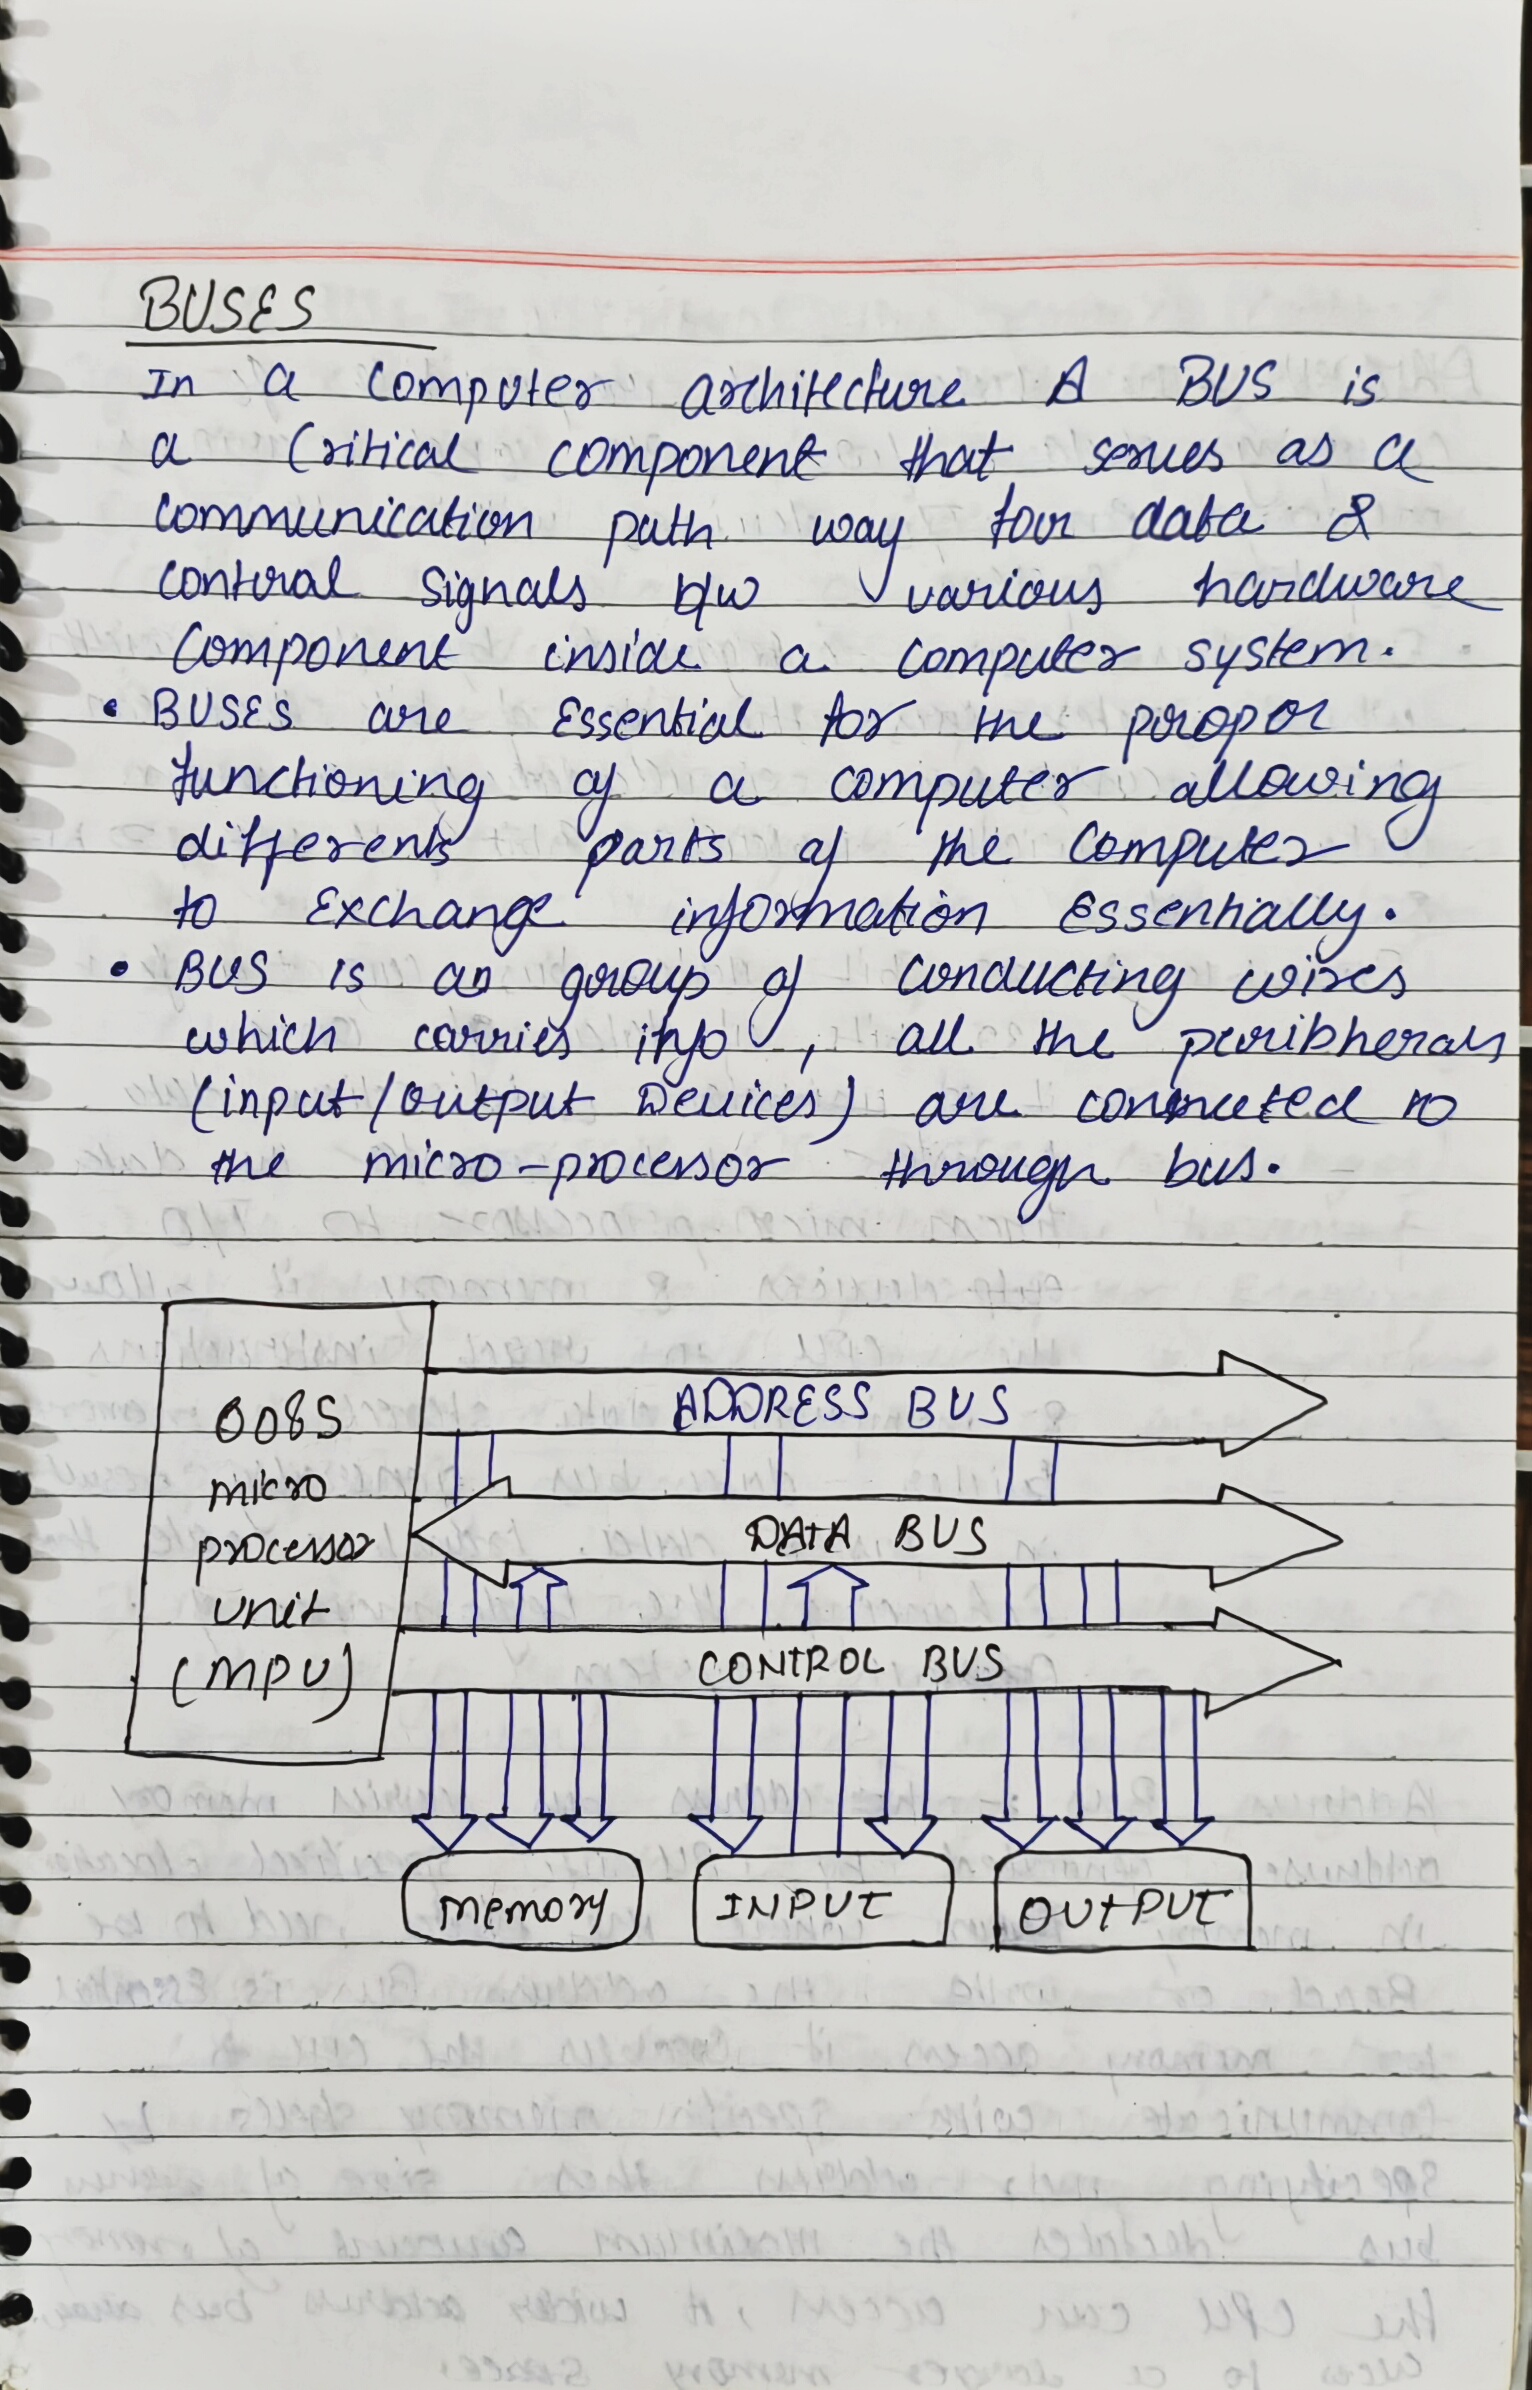 BUSES
In a computer architecture A BUS is
a critical component that serves as a
communication path way for data &
control signals b/w various hardware
component inside a computer system.
• BUSES are Essential for the propor
functioning of a computer allowing
differents parts of the computer
to Exchange information Essentially.
• BUS is an group of conducting wires
which carries info , all the peribherals
(input/output Devices) are connected to
the micro-processor through bus.
0085
micro
processor
unit
(MPU)
ADDRESS BUS
DATA BUS
CONTROL BUS
memory
INPUT
OUTPUT